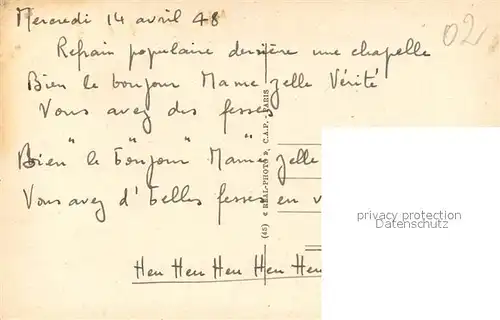 Mercredi 14 avril 48
02
Refrain populaire derrière une chapelle
Bien le bonjour Mame zelle Vérité
Vous avez des fesses
Bien " le " bonjour " Mame " zelle
Vous avez d' belles fesses en v
Heu Heu Heu Heu Heu
(45) « REAL-PHOTO », C.A.P. - PARIS
privacy protection
Datenschutz